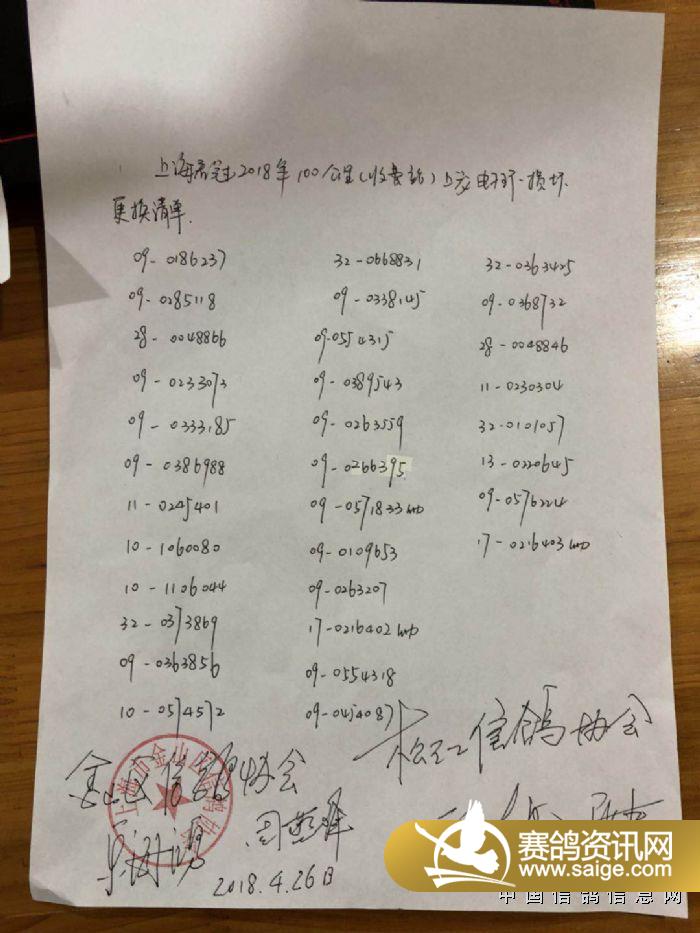 上海 2018年100公里(收费站)上交电子环损坏
更换清单.
09-0186237
09-0285118
28-0048866
09-0233073
09-0333185
09-0386988
11-0245401
10-1060080
10-1106044
32-0373869
09-0363856
10-0574572
32-0668831
09-0338145
09-0554315
09-0389543
09-0263559
09-0266395
09-0571833
09-0109653
09-0263207
17-0216402
09-0554318
09-0454087
32-0363425
09-0368732
28-0048846
11-0230304
32-0101057
13-0220645
09-0576224
17-0216403
金山区信鸽协会
松江信鸽协会
2018.4.26日
赛鸽资讯网
www.saige.com
中国信鸽信息网